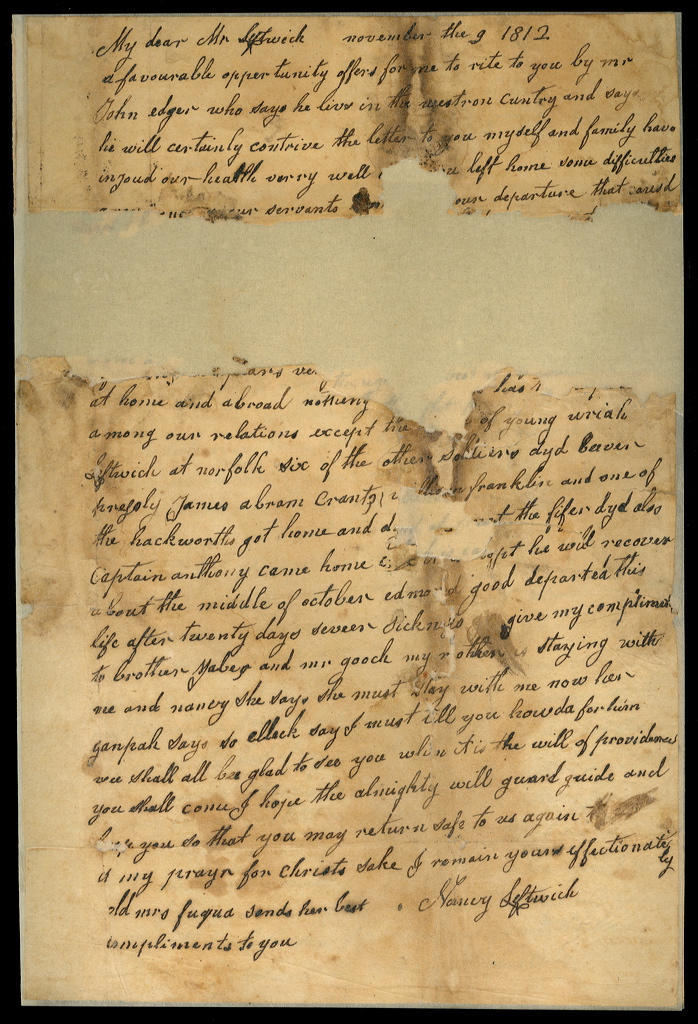 My dear Mr Leftwich november the 9 1812
a favourable oppertunity offers for me to rite to you by mr
John edger who says he livs in the westron cuntry and says
he will certainly contrive the letter to you myself and family have
injoud our health verry well left home some difficulties
servants our departure that
at home and abroad
among our relations except the of young uriah
Leftwich at norfolk six of the other soldiers dyd
James abram franklin and one of
the hackworths got home and the fifer dyd also
Captain anthony came home he will recover
about the middle of october edmond good departed this
life after twenty days seveer give my compliments
to brother Jabes and mr gooch my mother is staying with
me and nancy she says she must stay with me now her
ganpah says so elleck say I must till you howda for him
wee shall all be glad to see you when it is the will of providence
you shall come I hope the almighty will guard guide and
you so that you may return safe to us again
is my prayr for christs sake I remain yours effectionately
old mrs fuqua sends her best Nancy Leftwich
compliments to you